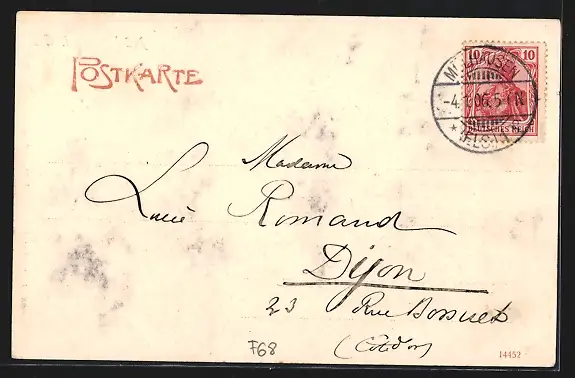 POSTKARTE
10 10
MÜLHAUSEN
-4.1.06.5-6N
* (ELS.) *
DEUTSCHES REICH
Madame
Lucie Romand
Dijon
23 Rue Bossuet
(Côte d'or)
F68
14452